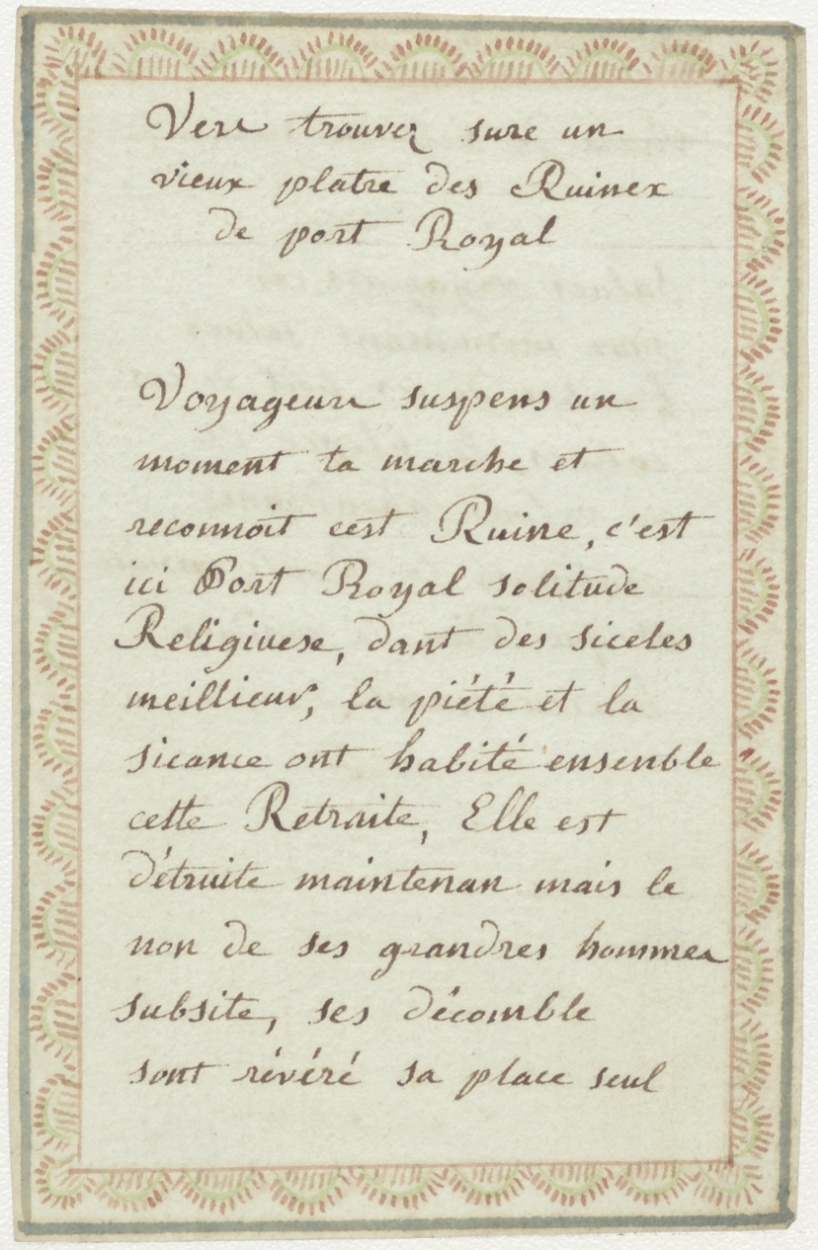 Vers trouvez sure un
vieux platre des Ruines
de port Royal
Voyageurs suspens un
moment ta marche et
reconnoit cest Ruine, c'est
ici Port Royal solitude
Religiuese, dant des siceles
meillieur, la piété et la
sicance ont habité ensenble
cette Retraite, Elle est
détruite maintenan mais le
non de ses grandres hommes
subsite, ses décomble
sont révéré sa place seul